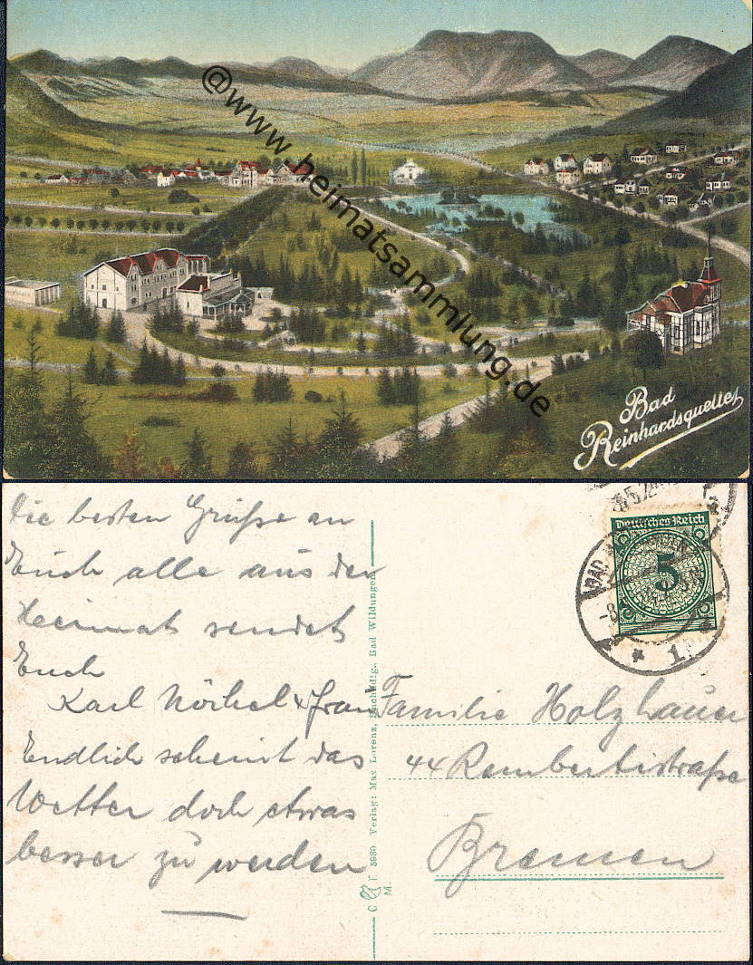 @www.heimatsammlung.de
Bad
Reinhardsquelle
Die besten Grüße an
Euch alle aus der
Heimat sendet
Euch
Karl & Frau
Endlich scheint das
Wetter doch etwas
besser zu werden
Verlag: Max Lorenz, Bad Wildungen.
5960
Deutsches Reich
5
BAD
1
Familie Holzhauer
44 Rembertistraße
Bremen